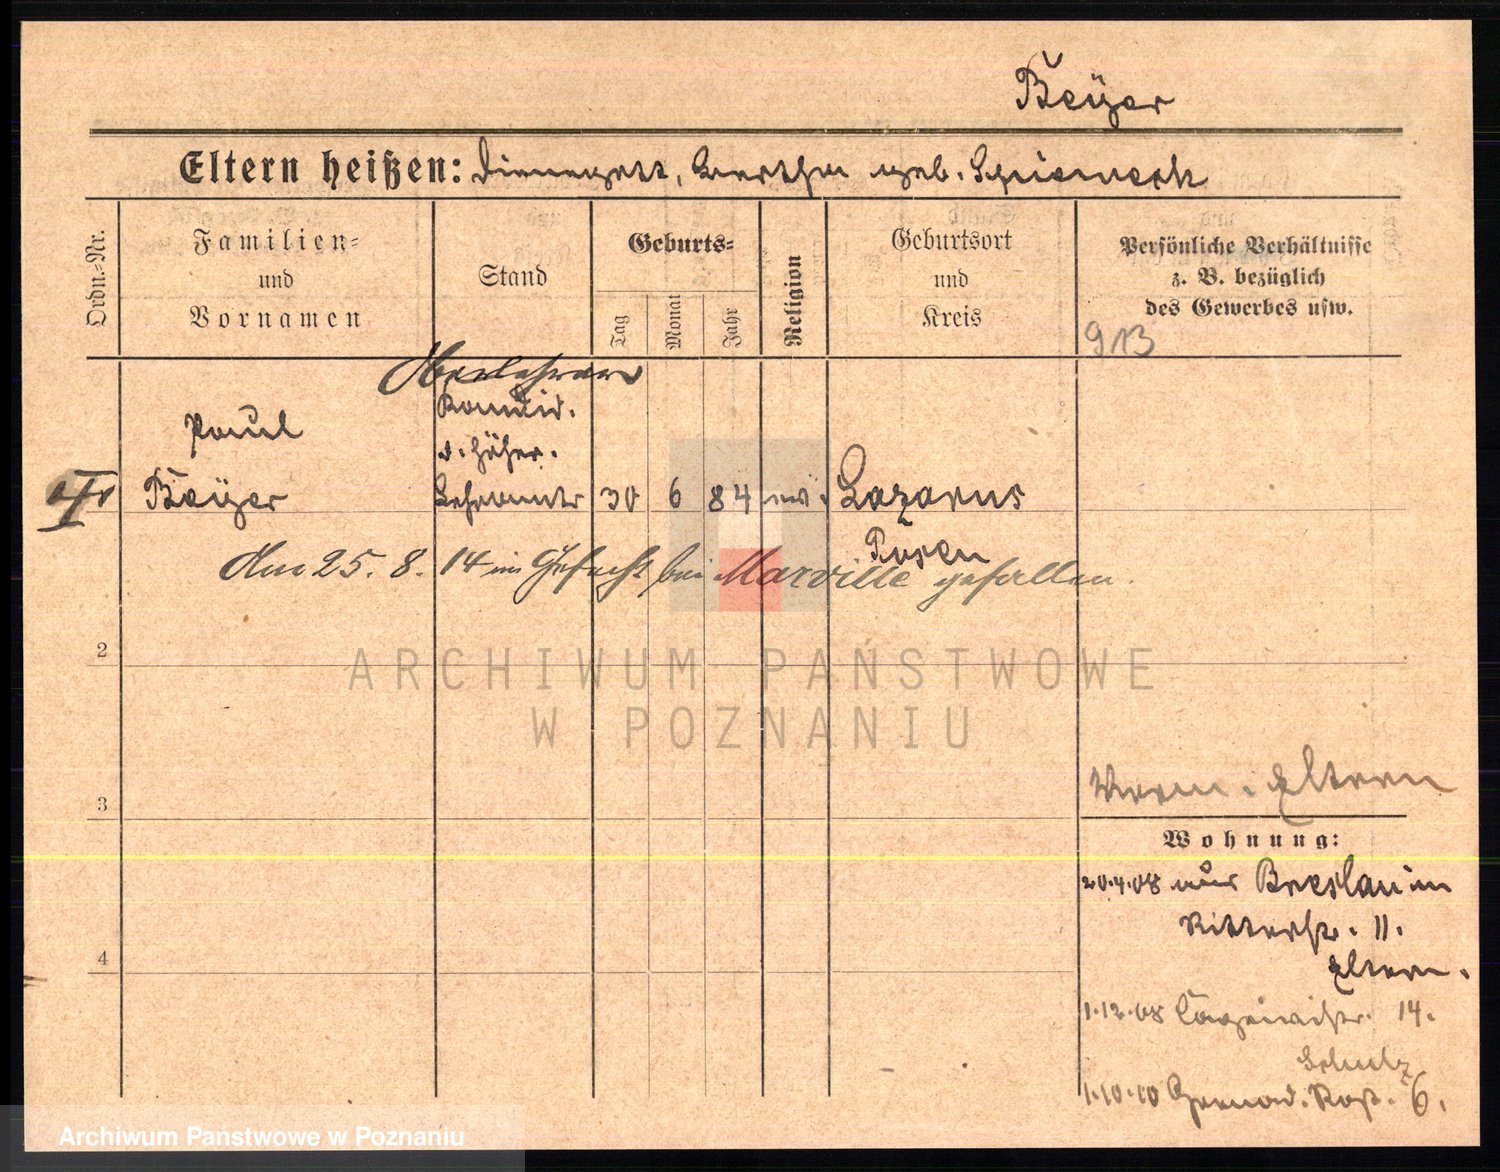 Beyer
Eltern heißen: Dienegott, Bertha geb.
Ordn.=Nr.
Familien=
und
Vornamen
Stand
Geburts=
Tag
Monat
Jahr
Religion
Geburtsort
und
Kreis
Persönliche Verhältnisse
z. B. bezüglich
des Gewerbes usw.
913
Oberlehrer
Kandid.
d. höher.
Lehramts
Paul
Beyer
30 6 84 ev.
Lazarus
Posen
Am 25. 8. 14 im Gefecht bei Marville gefallen.
2
3
4
Eltern
Wohnung:
20.4.08 aus Breslau in
Ritterstr. 11.
Eltern.
1.12.08 14.
Schulz
1.10.10 Grenad. Kas. 6.
ARCHIWUM PAŃSTWOWE
W POZNANIU
Archiwum Państwowe w Poznaniu